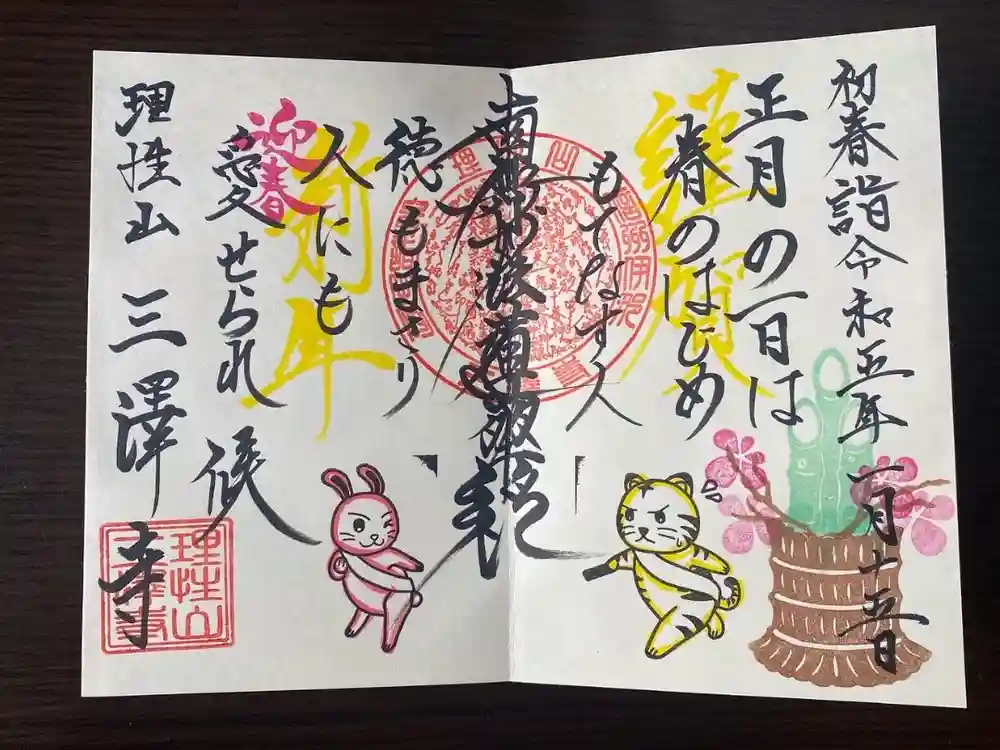 初春詣令和五年一月十五日
正月の一日は
春のはじめ
謹賀
もてなす人
南無妙法蓮華経
徳もまさり
人にも
新年
愛せられ候
迎春
理性山三澤寺
理性山